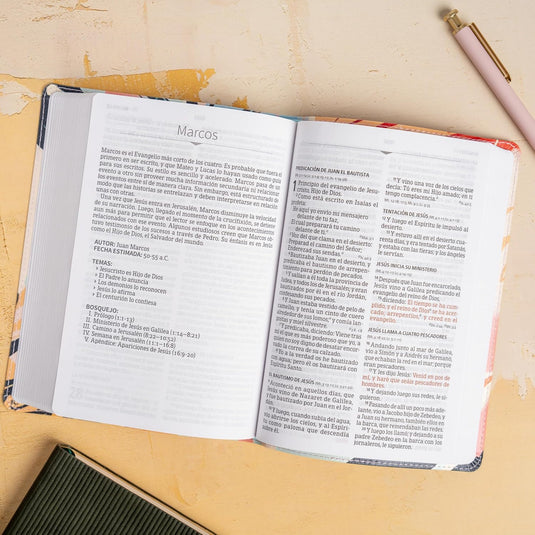 Marcos
Marcos es el Evangelio más corto de los cuatro. Es probable que fuera el
primero en ser escrito, y que Mateo y Lucas lo hayan usado como guía
para sus escritos. Su estilo es sencillo y acelerado. Marcos pasa de un
evento a otro sin proveer mucha información secundaria ni relacionar
los eventos entre sí de manera clara. Sin embargo, está estructurado de
modo que las historias se entrelazan y deben interpretarse en relación
unas con otras.
Una vez que Jesús entra en Jerusalén, Marcos disminuye la velocidad
de su narración. Luego, llegado el momento de la crucifixión, se detiene
aun más para permitir que el lector se enfoque en los acontecimientos
relacionados con ese evento. Algunos estudiosos creen que Marcos ob-
tuvo testimonio de los sucesos a través de Pedro. Su énfasis es en Jesús
como el Hijo de Dios, el Salvador del mundo.
AUTOR: Juan Marcos
FECHA ESTIMADA: 50-55 a.C.
TEMAS:
> Jesucristo es Hijo de Dios
> El Padre lo anuncia
> Los demonios lo reconocen
> Jesús lo afirma
> El centurión lo confiesa
BOSQUEJO:
I. Prólogo (1:1-13)
II. Ministerio de Jesús en Galilea (1:14–8:21)
III. Camino a Jerusalén (8:22–10:52)
IV. Semana en Jerusalén (11:1–16:8)
V. Apéndice: Apariciones de Jesús (16:9-20)
PREDICACIÓN DE JUAN EL BAUTISTA
1 Principio del evangelio de Jesu-
cristo, Hijo de Dios.
Como está escrito en Isaías el
profeta:
He aquí yo envío mi mensajero
delante de tu faz,
El cual preparará tu camino
delante de ti.
Voz del que clama en el desierto:
Preparad el camino del Señor;
Enderezad sus sendas.
Bautizaba Juan en el desierto, y
predicaba el bautismo de arrepen-
timiento para perdón de pecados.
Y salían a él toda la provincia de
Judea, y todos los de Jerusalén; y eran
bautizados por él en el río Jordán,
confesando sus pecados.
Y Juan estaba vestido de pelo de
camello, y tenía un cinto de cuero
alrededor de sus lomos; y comía lan-
gostas y miel silvestre.
Y predicaba, diciendo: Viene tras
mí el que es más poderoso que yo, a
quien no soy digno de desatar encor-
vado la correa de su calzado.
Yo a la verdad os he bautizado
con agua; pero él os bautizará con
Espíritu Santo.
EL BAUTISMO DE JESÚS
Aconteció en aquellos días, que
Jesús vino de Nazaret de Galilea,
y fue bautizado por Juan en el Jor-
dán.
Y luego, cuando subía del agua,
vio abrirse los cielos, y al Espíri-
tu como paloma que descendía
sobre él.
Y vino una voz de los cielos que
decía: Tú eres mi Hijo amado; en ti
tengo complacencia.
TENTACIÓN DE JESÚS
Y luego el Espíritu le impulsó al
desierto.
Y estuvo allí en el desierto cua-
renta días, y era tentado por Satanás,
y estaba con las fieras; y los ángeles
le servían.
JESÚS INICIA SU MINISTERIO
Después que Juan fue encarcelado,
Jesús vino a Galilea predicando el
evangelio del reino de Dios,
diciendo: El tiempo se ha cum-
plido, y el reino de Dios se ha acer-
cado; arrepentíos, y creed en el
evangelio.
JESÚS LLAMA A CUATRO PESCADORES
Andando junto al mar de Galilea,
vio a Simón y a Andrés su hermano,
que echaban la red en el mar; porque
eran pescadores.
Y les dijo Jesús: Venid en pos de
mí, y haré que seáis pescadores de
hombres.
Y dejando luego sus redes, le si-
guieron.
Pasando de allí un poco más ade-
lante, vio a Jacobo hijo de Zebedeo, y
a Juan su hermano, también ellos en
la barca, que remendaban las redes.
Y luego los llamó; y dejando a su
padre Zebedeo en la barca con los
jornaleros, le siguieron.